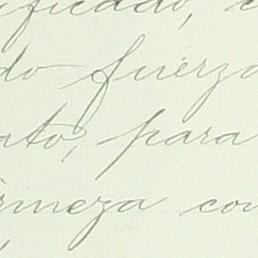 ificado, c
do fuerza
ato, para
irmeza con